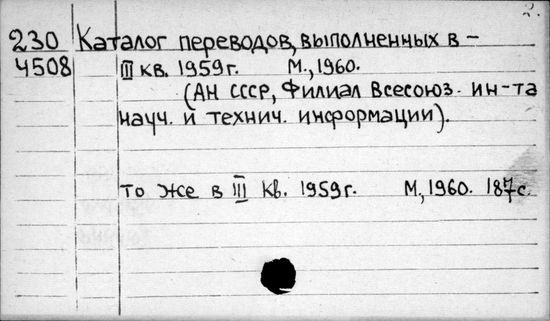 230 Каталог переводов, выполненных в –
4508 III кв. 1959г. М., 1960.
(АН СССР, Филиал Всесоюз. ин-та
науч. и технич. информации).
то же в III кв. 1959г. М., 1960. 187с.